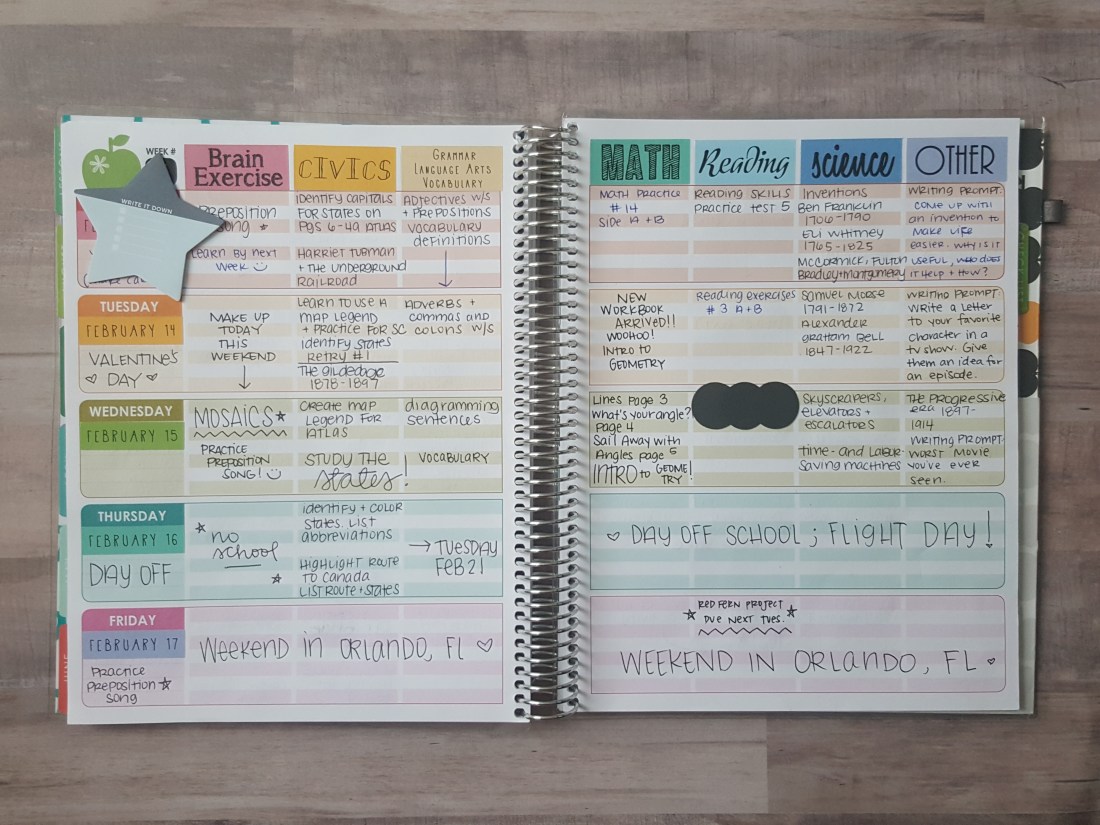 WEEK #
Brain
Exercise
CIVICS
GRAMMAR
LANGUAGE ARTS
VOCABULARY
WRITE IT DOWN
Preposition
Song
Learn by next
week
Identify capitals
for states on
Pgs 6-49 Atlas
Harriet Tubman
+ the Underground
Railroad
Adjectives w/s
+ Prepositions
Vocabulary
definitions
TUESDAY
FEBRUARY 14
VALENTINE'S
DAY
MAKE UP
TODAY
THIS
WEEKEND
Learn to use a
map legend
+ practice for SC
Identify states
retry #1
The Gilded age
1878-1897
Adverbs +
commas and
colons w/s
WEDNESDAY
FEBRUARY 15
MOSAICS
PRACTICE
PREPOSITION
SONG!
Create map
legend for
atlas
STUDY THE
states!
diagramming
sentences
VOCABULARY
THURSDAY
FEBRUARY 16
DAY OFF
no
school
Identify + color
states. List
abbreviations
Highlight route
to Canada
List route + states
→ TUESDAY
FEB 21
FRIDAY
FEBRUARY 17
Practice
Preposition
Song
Weekend in ORLANDO, FL
MATH
Reading
science
OTHER
Math Practice
#14
Side A+B
Reading Skills
Practice test 5
Inventions
Ben Franklin
1706-1790
Eli Whitney
1765-1825
McCormick, Fulton
Bradley + Montgomery
Writing Prompt.
come up with
an invention to
make life
easier. Why is it
useful, who does
it help + how?
NEW
WORKBOOK
ARRIVED!!
WOOHOO!
INTRO to
GEOMETRY
Reading exercises
#3 A+B
Samuel Morse
1791-1872
Alexander
Graham Bell
1847-1922
Writing Prompt:
Write a letter
to your favorite
character in a
tv show. Give
them an idea for
an episode.
Lines Page 3
What's your angle?
Page 4
Sail Away with
Angles page 5
INTRO to GEOME
TRY!
Skyscrapers,
elevators +
escalators
time- and labor-
saving machines
The Progressive
era 1897-
1914
Writing Prompt:
Worst movie
you've ever
seen.
DAY OFF SCHOOL; FLIGHT DAY!
RED FERN PROJECT
DUE NEXT TUES.
WEEKEND IN ORLANDO, FL
JUNE